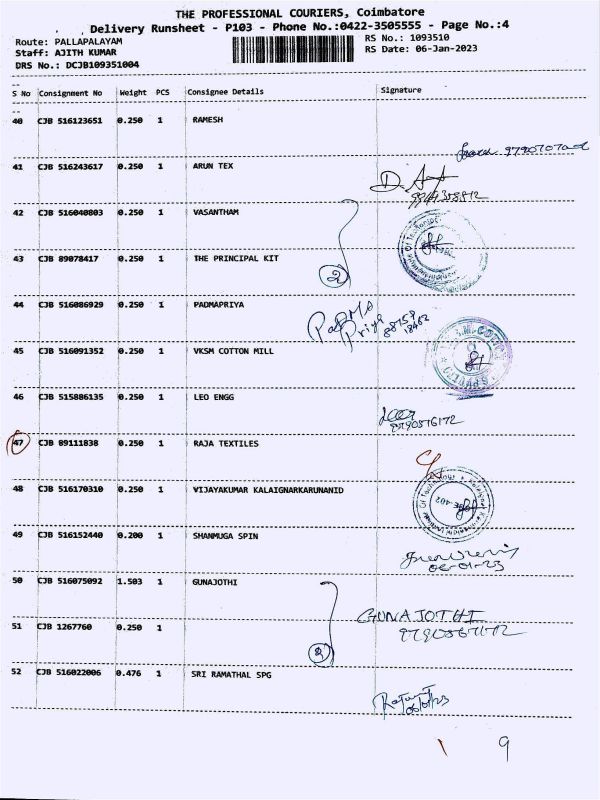 THE PROFESSIONAL COURIERS, Coimbatore
Delivery Runsheet - P103 - Phone No.:0422-3505555 - Page No.:4
Route: PALLAPALAYAM RS No.: 1093510
Staff: AJITH KUMAR RS Date: 06-Jan-2023
DRS No.: DCJB109351004
S No Consignment No Weight PCS Consignee Details Signature
40 CJB 516123651 0.250 1 RAMESH
41 CJB 516243617 0.250 1 ARUN TEX
42 CJB 516040803 0.250 1 VASANTHAM
43 CJB 89078417 0.250 1 THE PRINCIPAL KIT
2
44 CJB 516086929 0.250 1 PADMAPRIYA
Padma
Priya
45 CJB 516091352 0.250 1 VKSM COTTON MILL
46 CJB 515886135 0.250 1 LEO ENGG
47 CJB 89111838 0.250 1 RAJA TEXTILES
48 CJB 516170310 0.250 1 VIJAYAKUMAR KALAIGNARKARUNANID
49 CJB 516152440 0.200 1 SHANMUGA SPIN
06-01-23
50 CJB 516075092 1.503 1 GUNAJOTHI
GUNAJOTHI
51 CJB 1267760 0.250 1
2
52 CJB 516022006 0.476 1 SRI RAMATHAL SPG
9